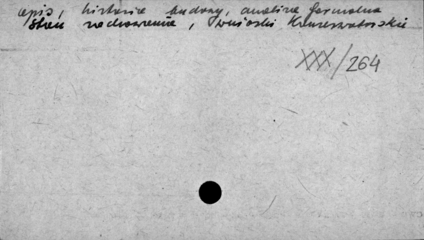 opis, historia budowy, analiza formalna
stan zachowania, wnioski konserwatorskie
XXX/264